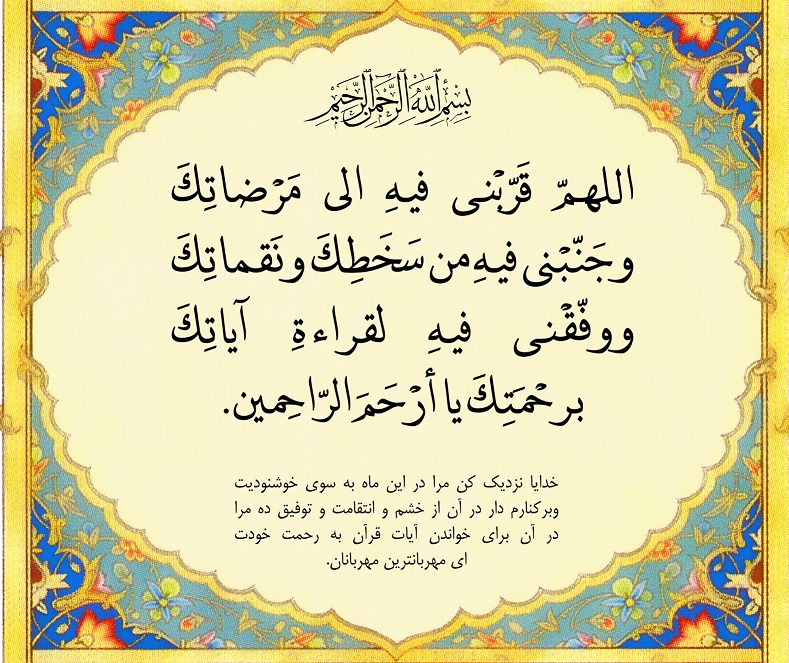 بِسْمِ اللَّهِ الرَّحْمَنِ الرَّحِيمِ
اللهمّ قَرّبْنی فیهِ الی مَرْضاتِكَ
وجَنّبْنی فیهِ من سَخَطِكَ ونَقماتِكَ
ووفّقْنی فیهِ لقراءةِ آیاتِكَ
برحْمَتِكَ یا أرْحَمَ الرّاحِمین.
خدایا نزدیک کن مرا در این ماه به سوی خوشنودیت
وبرکنارم دار در آن از خشم و انتقامت و توفیق ده مرا
در آن برای خواندن آیات قرآن به رحمت خودت
ای مهربانترین مهربانان.